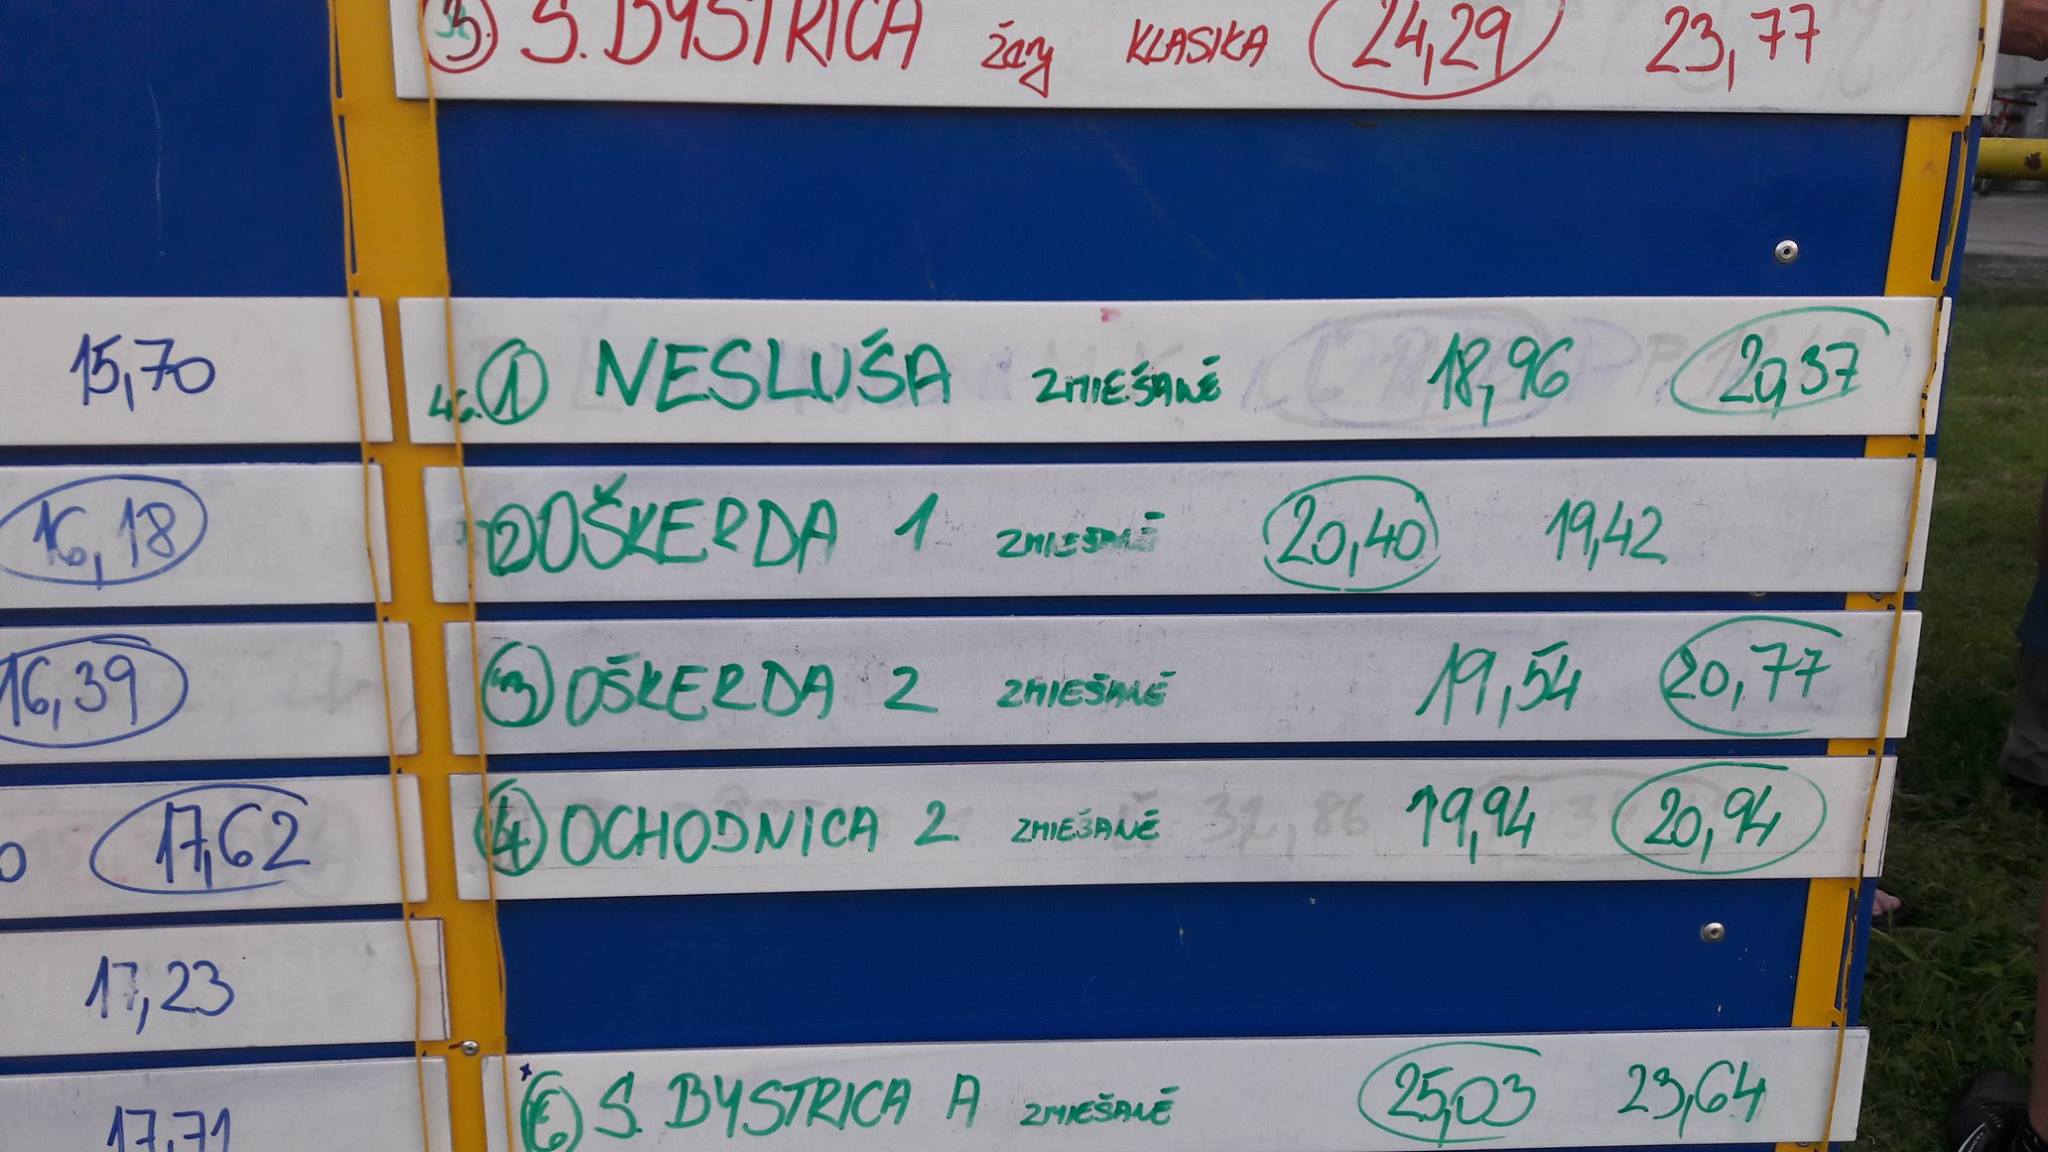 3. S. BYSTRICA ženy KLASIKA 24,29 23,77
15,70
16,18
16,39
0 17,62
17,23
17,71
1 NESLUŠA ZMIEŠANÉ 18,96 20,37
2 OŠKERDA 1 ZMIEŠANÉ 20,40 19,42
3 OŠKERDA 2 ZMIEŠANÉ 19,54 20,77
4 OCHODNICA 2 ZMIEŠANÉ 19,94 20,94
6 S. BYSTRICA A ZMIEŠANÉ 25,03 23,64